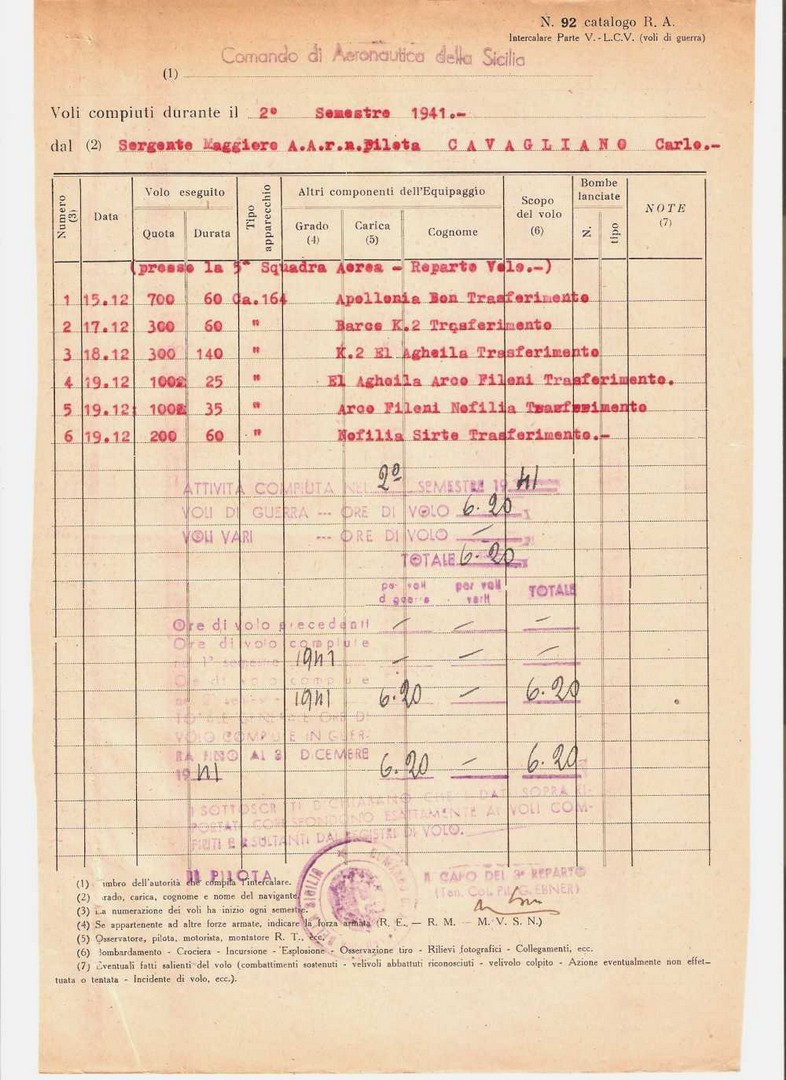 N. 92 catalogo R. A.
Intercalare Parte V. - L.C.V. (voli di guerra)
Comando di Aeronautica della Sicilia
(1)
Voli compiuti durante il 2° Semestre 1941.-
dal (2) Sergente Maggiore A.A.r.n.Pilota CAVAGLIANO Carlo.-
Numero (3) Data Volo eseguito Tipo apparecchio Altri componenti dell'Equipaggio Scopo del volo (6) Bombe lanciate NOTE (7)
Quota Durata Grado (4) Carica (5) Cognome N. tipo
(presso la 5^ Squadra Aerea - Reparto Volo.-)
1 15.12 700 60 Ca.164 Apollonia Bon Trasferimento
2 17.12 300 60 " Barce K.2 Trçsferimento
3 18.12 300 140 " K.2 El Agheila Trasferimento
4 19.12 100 25 " El Agheila Arco Fileni Trasferimento.
5 19.12 100 35 " Arco Fileni Nofilia Trasferimento
6 19.12 200 60 " Nofilia Sirte Trasferimento.-
ATTIVITÀ COMPIUTA NEL 2° SEMESTRE 19 41
VOLI DI GUERRA --- ORE DI VOLO 6.20
VOLI VARI --- ORE DI VOLO —
TOTALE 6.20
per voli di guerra per voli varii TOTALE
Ore di volo precedenti — — —
Ore di volo compiute
nel 1° semestre 1941 — — —
Ore di volo compiute
1941 6.20 — 6.20
TOTALE GENERALE ORE DI
VOLO COMPIUTE IN GUER-
RA FINO AL 31 DICEMBRE
19 41 6.20 — 6.20
I SOTTOSCRITTI DICHIARANO CHE I DATI SOPRA RI-
PORTATI CORRISPONDONO ESATTAMENTE AI VOLI COM-
PIUTI E RISULTANTI DAI REGISTRI DI VOLO.
IL PILOTA
IL CAPO DEL 3° REPARTO
(Ten. Col. Pil. G. EBNER)
SICILIA
(1) Timbro dell'autorità che compila l'intercalare.
(2) Grado, carica, cognome e nome del navigante.
(3) La numerazione dei voli ha inizio ogni semestre.
(4) Se appartenente ad altre forze armate, indicare la forza armata (R. E., — R. M. — M. V. S. N.)
(5) Osservatore, pilota, motorista, montatore R. T., ecc.
(6) Bombardamento - Crociera - Incursione - Esplosione - Osservazione tiro - Rilievi fotografici - Collegamenti, ecc.
(7) Eventuali fatti salienti del volo (combattimenti sostenuti - velivoli abbattuti riconosciuti - velivolo colpito - Azione eventualmente non effet-
tuata o tentata - Incidente di volo, ecc.).